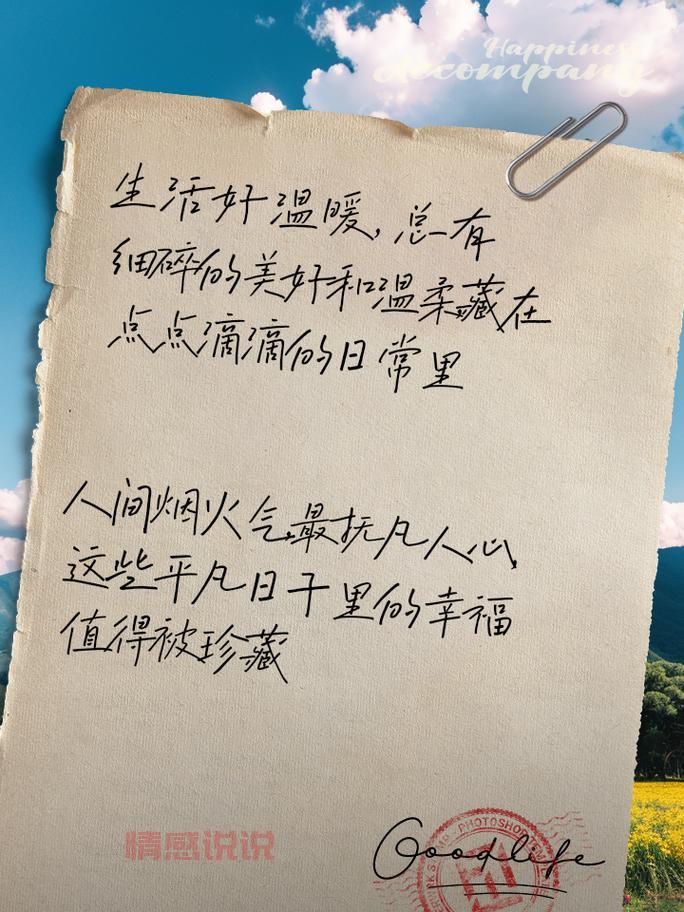 Happiness
Accompany
生活好温暖,总有
细碎的美好和温柔藏在
点点滴滴的日常里
人间烟火气,最抚凡人心
这些平凡日子里的幸福
值得被珍藏
情感说说
PHOTOSHOP
Good life